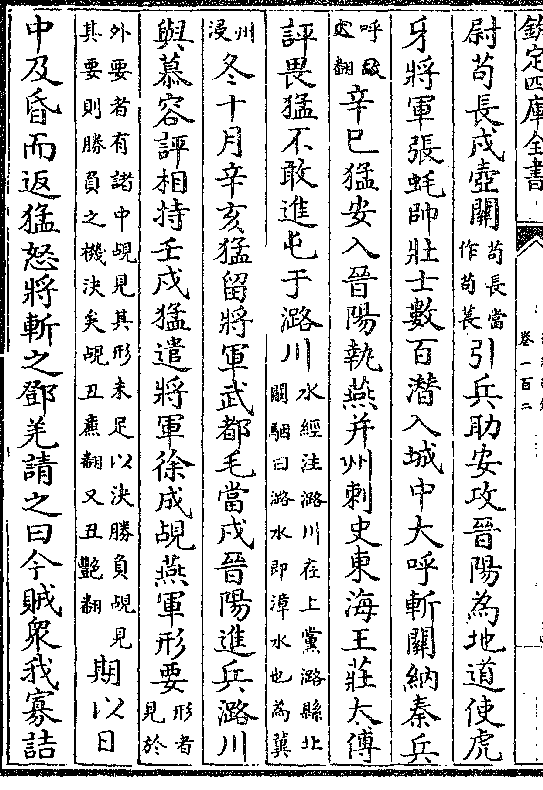 欽定四庫全書
卷一百二
尉苟長戍壺關苟長當作苟萇引兵助安攻晉陽為地道使虎
牙將軍張蚝帥壯士數百潛入城中大呼斬關納秦兵
呼故翻辛巳猛安入晉陽執燕并州刺史東海王莊太傅
評畏猛不敢進屯于潞川水經注潞川在上黨潞縣北闞駰曰潞水即漳水也為冀
州浸冬十月辛亥猛留將軍武都毛當戍晉陽進兵潞川
與慕容評相持壬戌猛遣將軍徐成覘燕軍形要形者見於
外要者有諸中覘見其形未足以決勝負覘見其要則勝負之機決矣覘丑亷翻又丑艷翻期以日
中及昏而返猛怒將斬之鄧羌請之曰今賊衆我寡詰